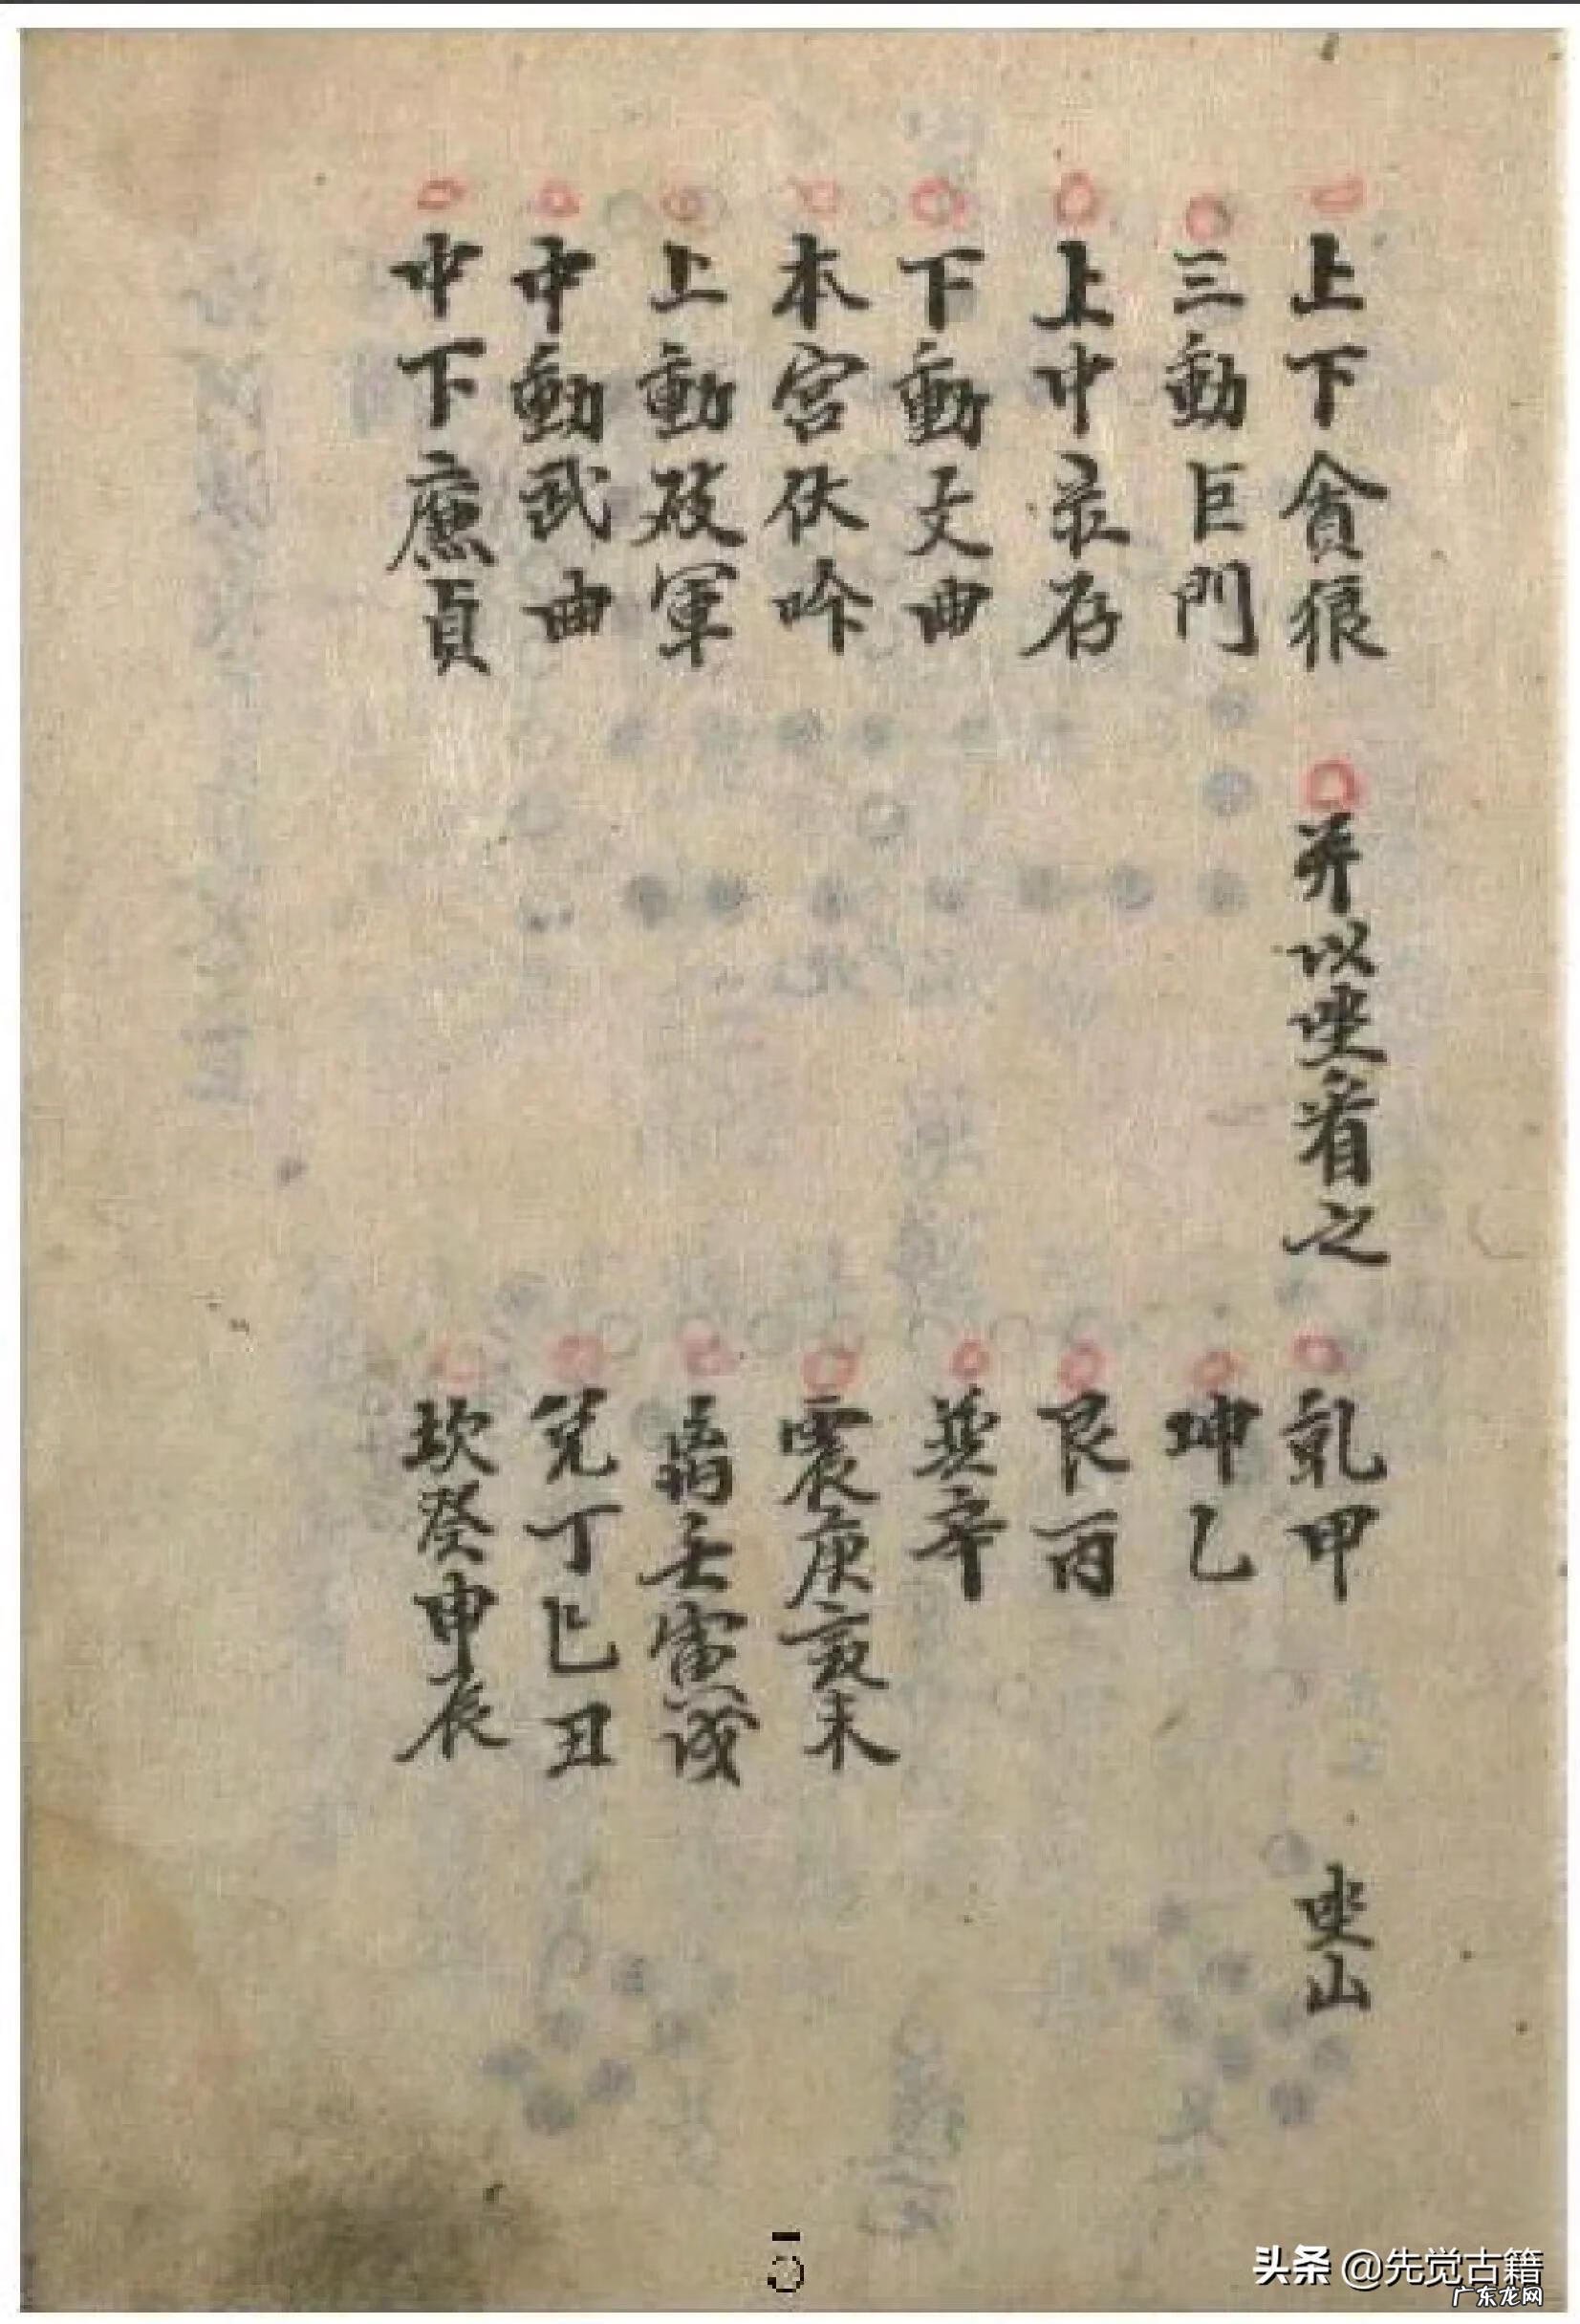 上下貪狼
三動巨門
上中录存
下動文曲
本宫伏吟
上動破軍
中動武曲
中下廉貞
并以坐看之
乹甲
坤乙
艮丙
巽辛
震庚亥未
离壬寅戌
兑丁巳丑
坎癸申辰
坐山
头条 @先觉古籍
广东龙网